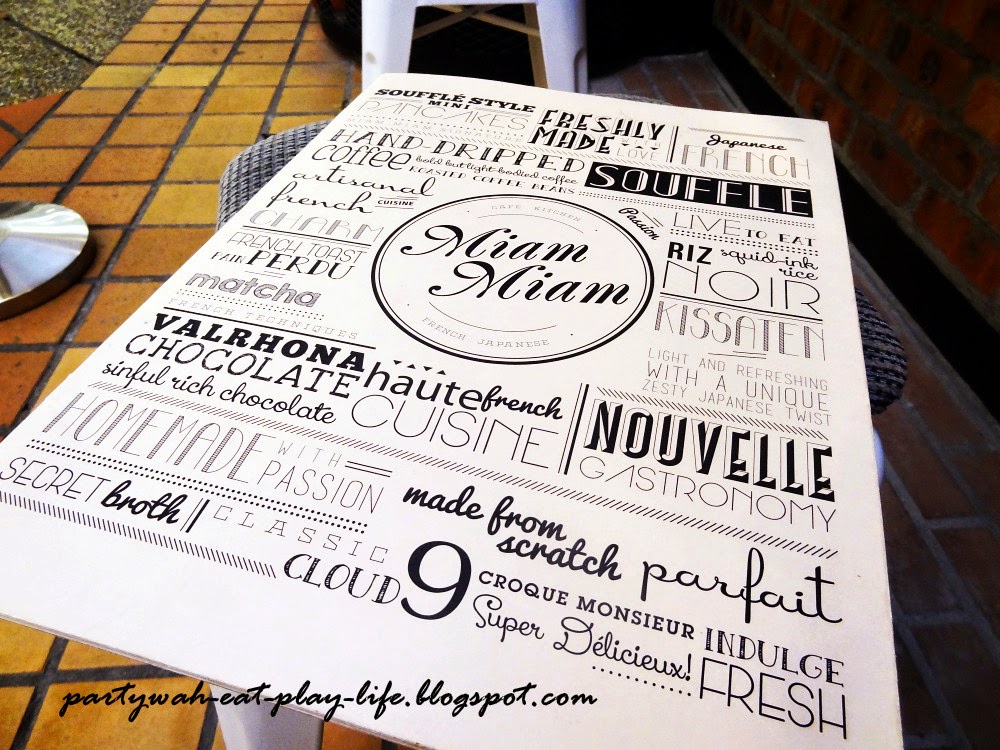 SOUFFLÉ STYLE
MINI
PANCAKES
FRESHLY
MADE
LOVE
Japanese
FRENCH
HAND-DRIPPED
coffee
bold but light-bodied coffee
ROASTED COFFEE BEANS
SOUFFLE
artisanal
french CUISINE
Passion
LIVE TO EAT
CHARM
CAFE KITCHEN
Miam
Miam
FRENCH JAPANESE
RIZ squid-ink
rice
NOIR
FRENCH TOAST
PAIN PERDU
matcha
FRENCH TECHNIQUES
KISSATEN
LIGHT AND REFRESHING
WITH A UNIQUE
ZESTY JAPANESE TWIST
VALRHONA
CHOCOLATE
sinful rich chocolate
haute french
CUISINE
NOUVELLE
GASTRONOMY
HOMEMADE WITH
PASSION
SECRET broth
CLASSIC
made from
scratch
parfait
CLOUD 9
CROQUE MONSIEUR
Super Délicieux!
INDULGE
FRESH
partywah-eat-play-life.blogspot.com